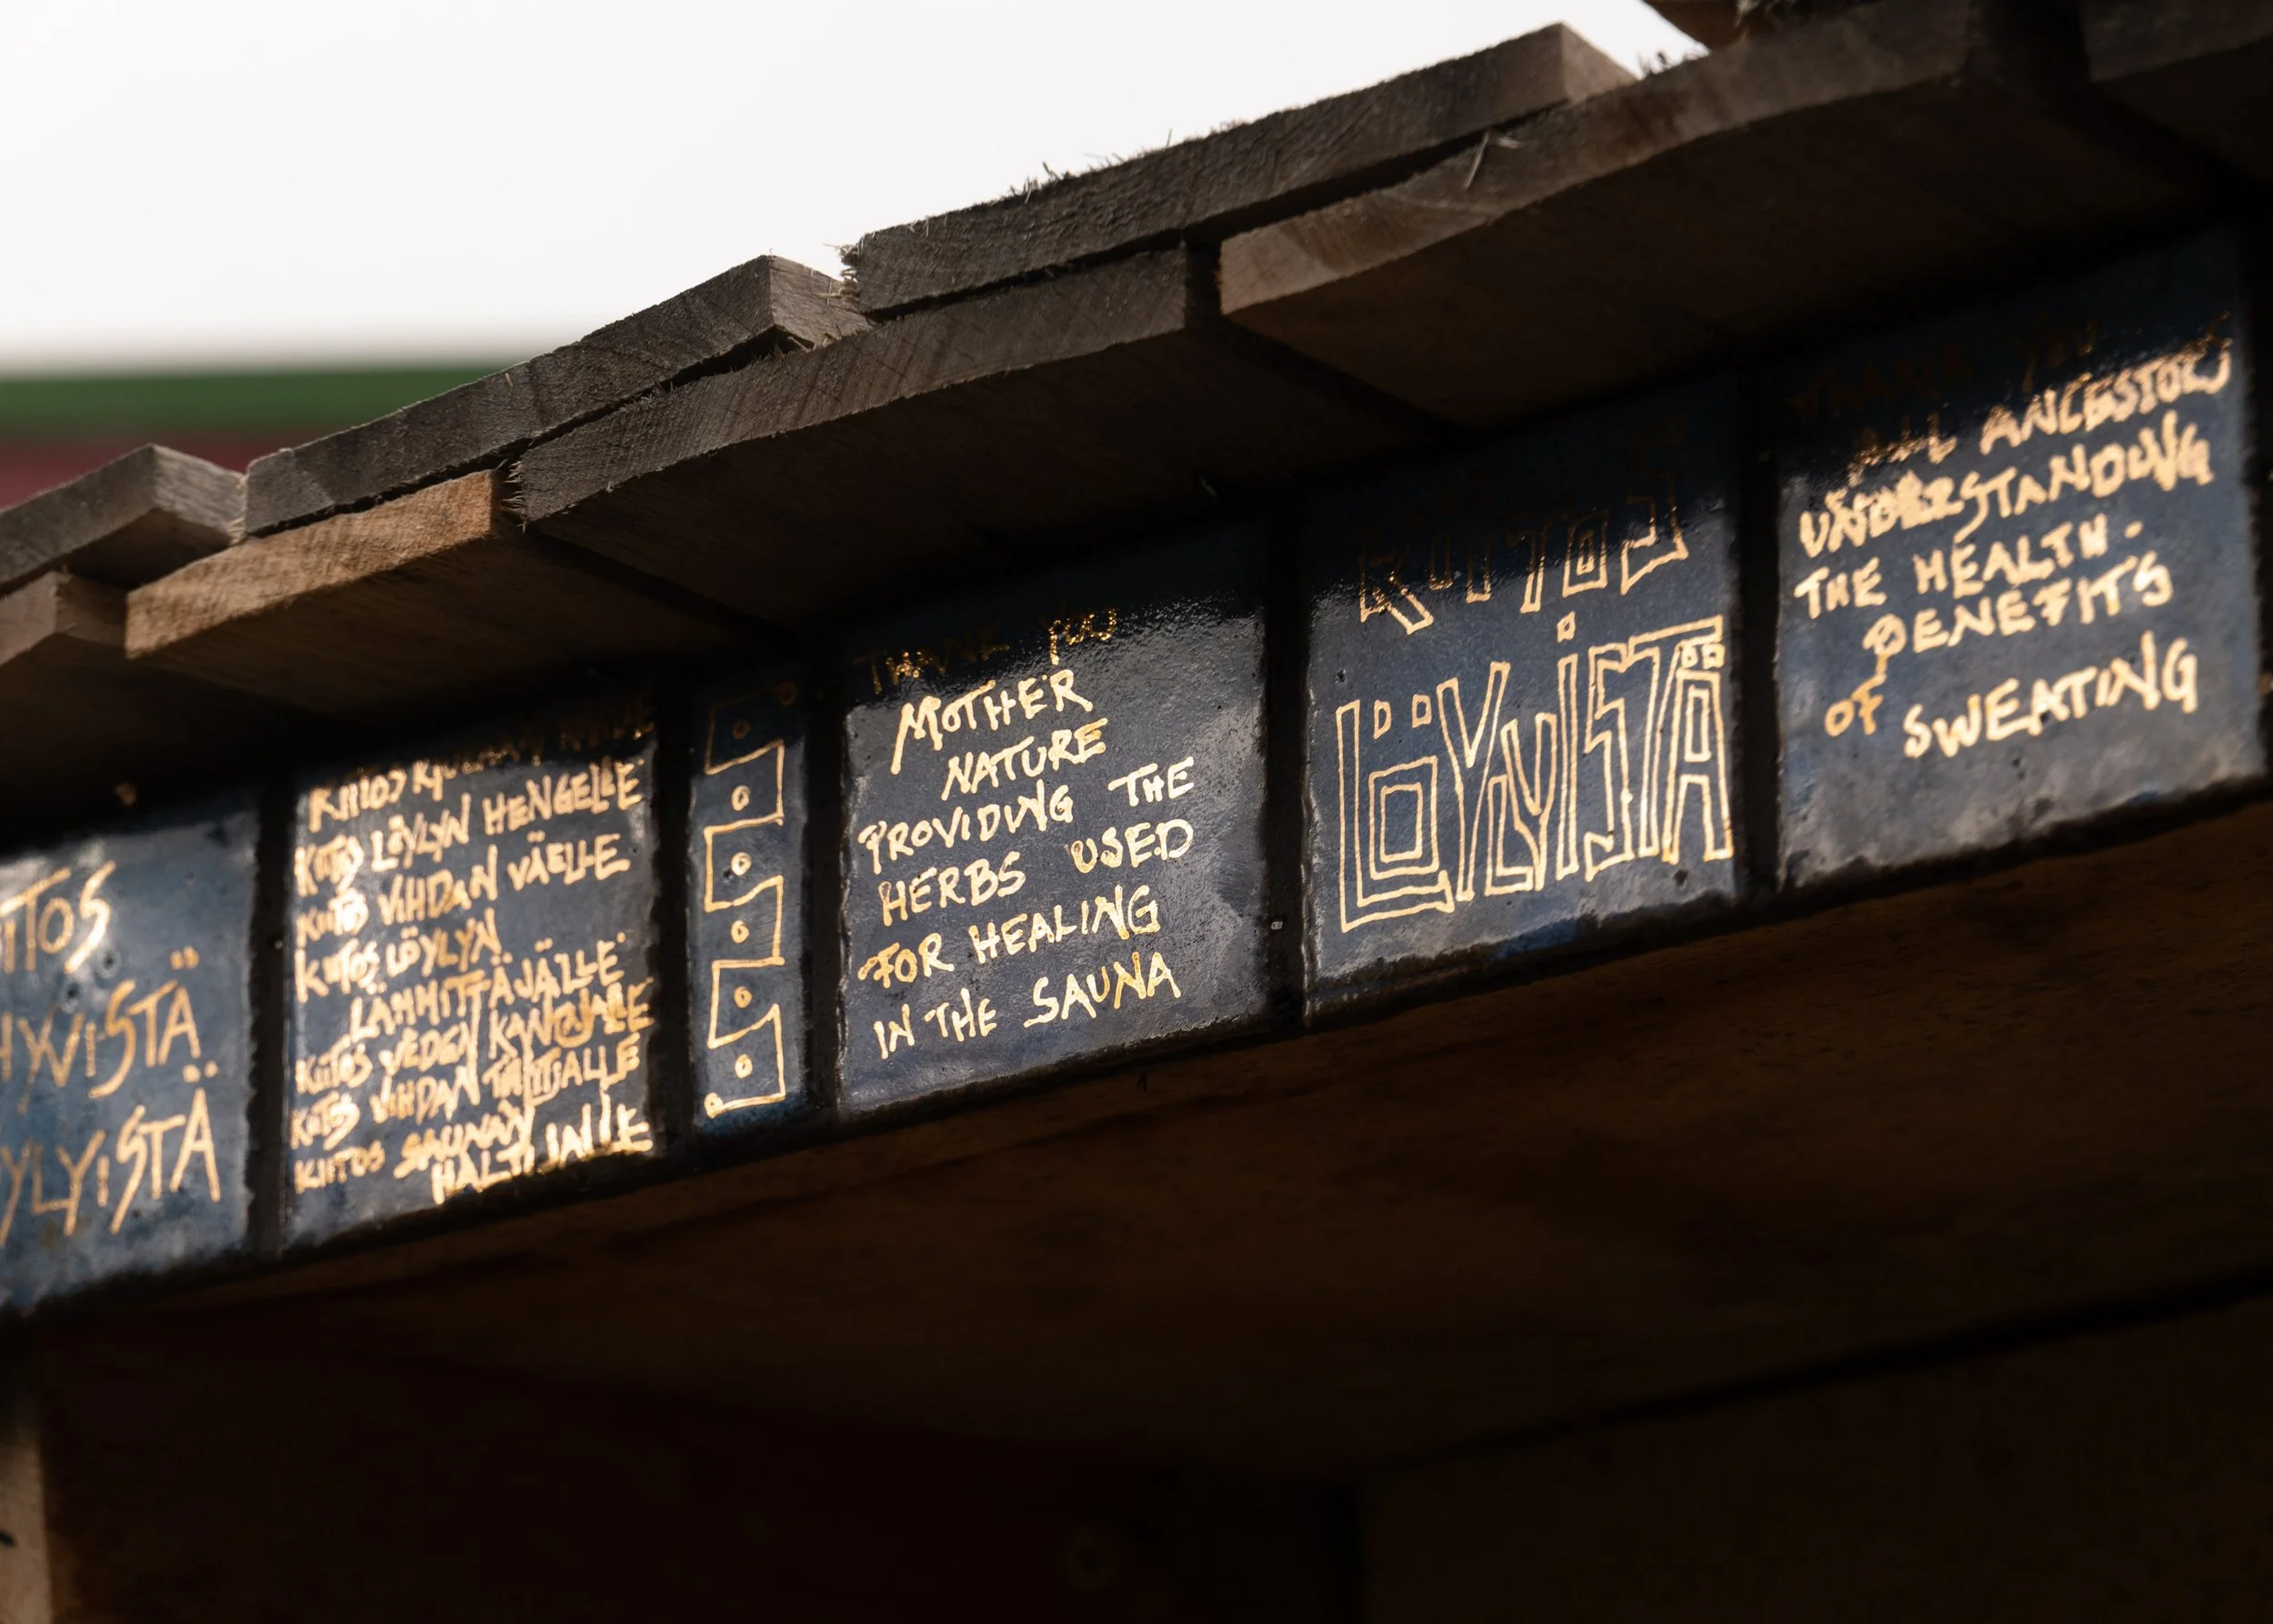 KIITOS
HYVISTÄ
LÖYLYISTÄ
KIITOS
KIITOS LÖYLYN HENGELLE
KIITOS VIHDAN VÄELLE
KIITOS LÖYLYN
LÄMMITTÄJÄLLE
KIITOS VEDEN KANTAJALLE
KIITOS VIHDAN TAITTAJALLE
KIITOS SAUNAN
HALTIJALLE
THANK YOU
MOTHER
NATURE
PROVIDING THE
HERBS USED
FOR HEALING
IN THE SAUNA
KIITOS
LÖYLYISTÄ
THANK YOU
ALL ANCESTORS
UNDERSTANDING
THE HEALTH-
BENEFITS
OF SWEATING